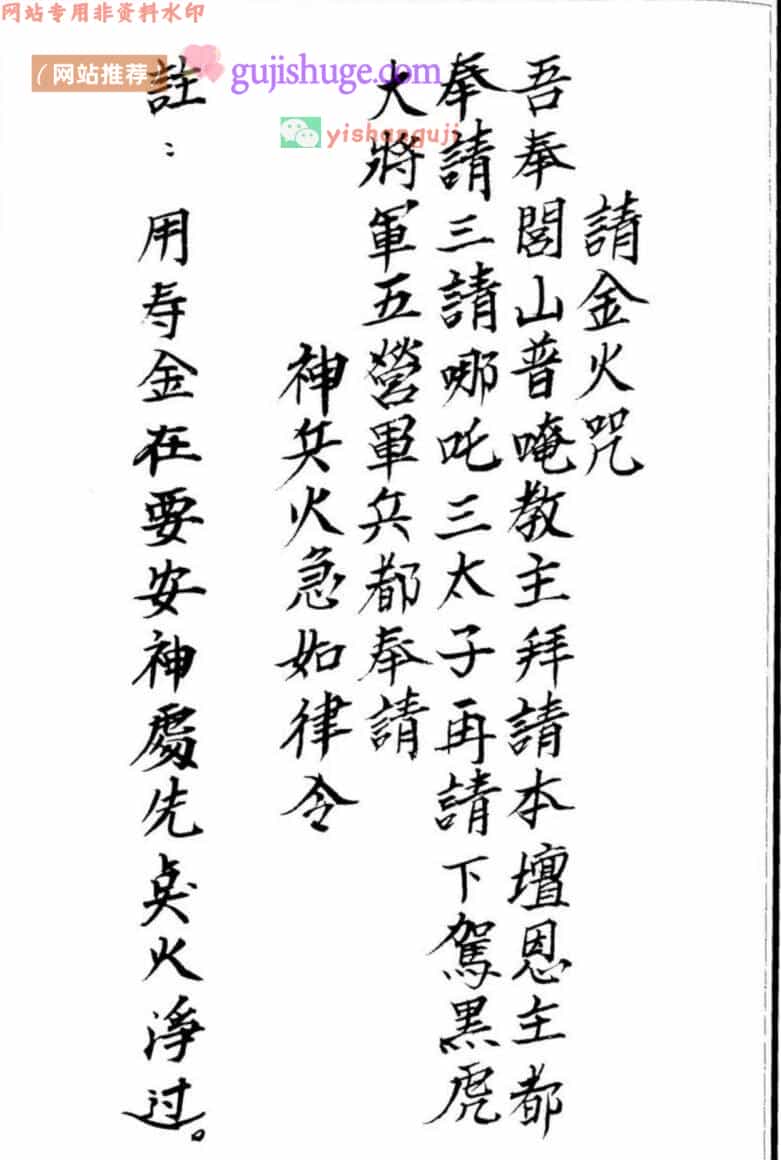 网站专用非资料水印
（网站推荐）
gujishuge.com
yishanguji
請金火咒
吾奉閭山普唵教主拜請本壇恩主都
奉請三請哪吒三太子再請下駕黑虎
大將軍五營軍兵都奉請
神兵火急如律令
註：用寿金在要安神處先奌火淨过。